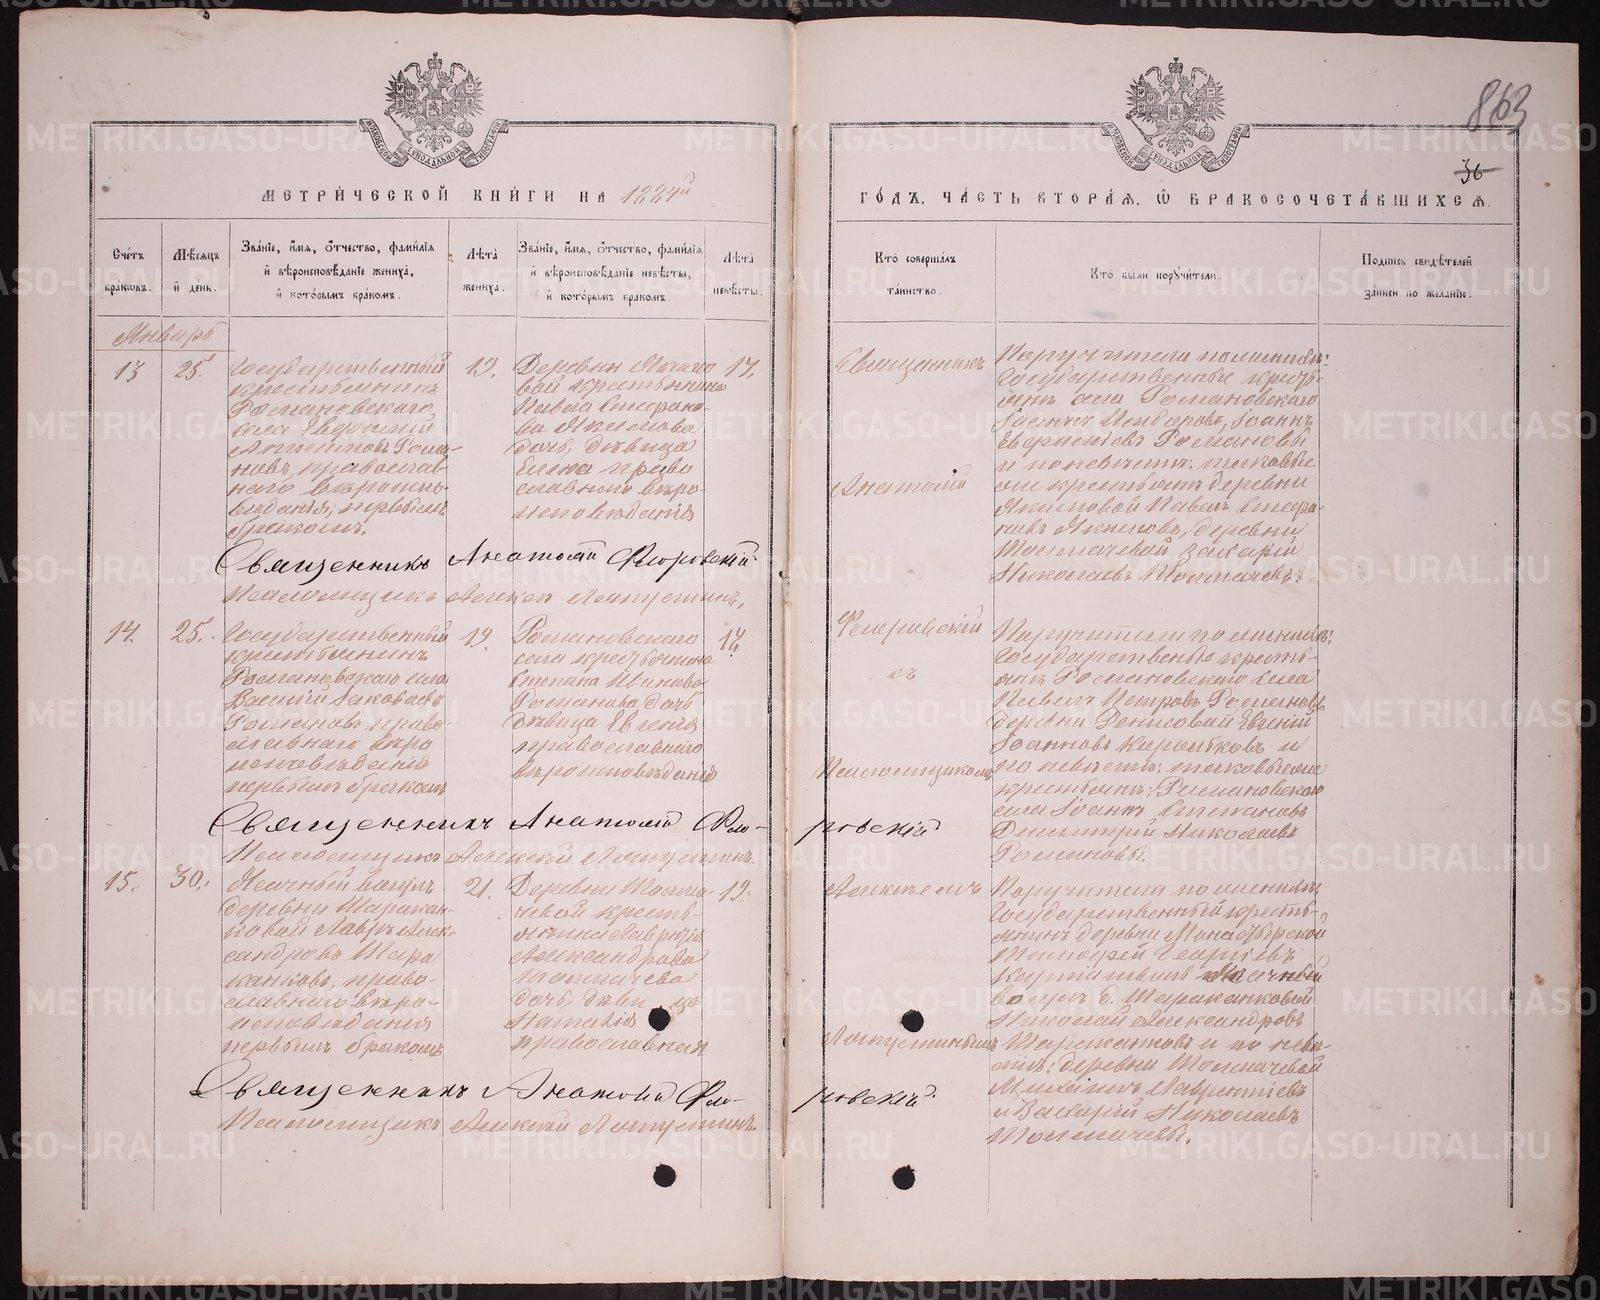 863
36
МОСКОВСКОЙ СѴНОДАЛЬНОЙ ТИПОГРАФІИ
МОСКОВСКОЙ СѴНОДАЛЬНОЙ ТИПОГРАФІИ
МЕТРИ́ЧЕСКОЙ КНИ́ГИ НА 1884й
ГО́ДЪ, ЧА́СТЬ ВТОРА́Я, Ѡ БРАКОСОЧЕТА́ВШИХСЯ.
Сче́тъ бра́ковъ.
Мѣ́сяцъ и҆ де́нь.
Зва́нїе, и҆́мя, ѻ҆́тчество, фами́лїя и҆ вѣроисповѣ́данїе жениха̀, и҆ кото́рымъ бра́комъ.
Лѣ́та жениха̀.
Зва́нїе, и҆́мя, ѻ҆́тчество, фами́лїя и҆ вѣроисповѣ́данїе невѣ́сты, и҆ кото́рымъ бракомъ.
Лѣ́та невѣ́сты.
Кто̀ соверша́лъ та́инство.
Кто̀ бы́ли порꙋчи́тели.
По́дпись свидѣ́телей за́писи по жела́нїю.
Январь
13
25.
Государственный
крестьянинъ
Романовскаго
села Евфимій
Рома-
новъ, православ-
наго вѣроиспо-
вѣданія, первымъ
бракомъ.
19.
Деревни
вой крестьянина
Павла Стефано-
ва Акилова
дочь, дѣвица
Елена право
славнаго вѣро-
исповѣданія
17.
Священникъ
Анатолій
Поручители по женихѣ:
Государственные кресть-
яне села Романовскаго
Іоаннъ Исидоровъ, Іоаннъ
Романовы
и по невѣстѣ: таковые
же крестьяне деревни
Акиловой Павелъ Стефа-
новъ Акиловъ, деревни
Толмачевой Захарій
Николаевъ Толмачевъ.
Священникъ Анатолій Флоровскій.
Псаломщикъ Алексѣй Лопушинъ.
14.
25.
Государственный
крестьянинъ
Романовскаго села
Василій Іаковлевъ
Романовъ, право-
славнаго вѣро
исповѣданія
первымъ бракомъ
19.
Романовскаго
села крестьянина
Степана Иванова
Романова дочь
дѣвица Евгенія
православнаго
вѣроисповѣданія
17.
Флоровскій
съ
Псаломщикомъ
Поручители по женихѣ:
Государственные кресть-
яне Романовскаго села
Павелъ Петровъ Романовъ,
деревни Евгеній
Іоанновъ и
по невѣстѣ: таковые же
крестьяне Романовскаго
села Іоаннъ Степановъ
Димитрій Николаевъ
Романовы.
Священникъ Анатолій Фло-
ровскій
Псаломщикъ Алексѣй Лопушинъ.
15.
30.
деревни Таракан-
ковой Лавръ Алек-
сандровъ Тара
канковъ, право-
славнаго вѣро-
исповѣданія
первымъ бракомъ
21.
Деревни Толма-
чевой кресть-
янина Лаврентія
Александрова
Толмачева
дочь дѣви ца
Наталія
православная
19.
Алексѣемъ
Лопушинымъ
Поручители по женихѣ:
Государственный кресть-
янинъ деревни Монастырской
Тимофей Георгіевъ
д. Тараканковой
Николай Александровъ
Тараканковъ и по невѣ-
стѣ: деревни Толмачевой
Михаилъ Лаврентіевъ
и Захарій Николаевъ
Толмачевы.
Священникъ Анатолій Фло-
ровскій.
Псаломщикъ Алексѣй Лопушинъ.
METRIKI.GASO-URAL.RU